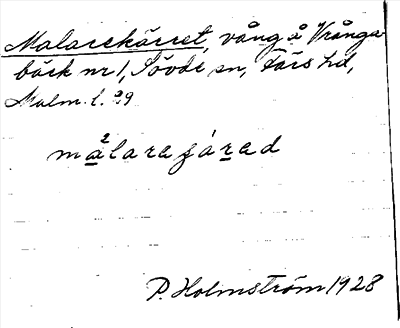 Malarekärret, vång å Vrånga
bäck nr 1, Sövde sn, Färs hd,
Malm. l. 29
målarejárad
P. Holmström 1928